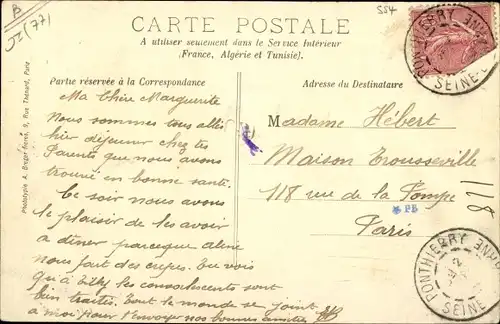 B
52 (77)
554
CARTE POSTALE
A utiliser seulement dans le Service Intérieur
(France, Algérie et Tunisie).
Partie réservée à la Correspondance
Adresse du Destinataire
Phototypie A. Breger frères, 9, Rue Thénard, Paris
Ma Chère Marguerite
Nous sommes tous allés
hier déjeuner chez tes
Parents que nous avons
trouvé en bonne santé.
Ce soir nous avons
le plaisir de les avoir
à dîner parceque aline
nous fait des crêpes. Tu vois
qu'à les convalescents sont
bien traités. Tout le monde se joint
à moi pour t'envoyer nos bonnes amitiés
Madame Hébert
Maison Trousseville
118 rue de la Pompe
Paris
118
PB
PONTHIERRY
SEINE
PONTHIERRY
SEINE